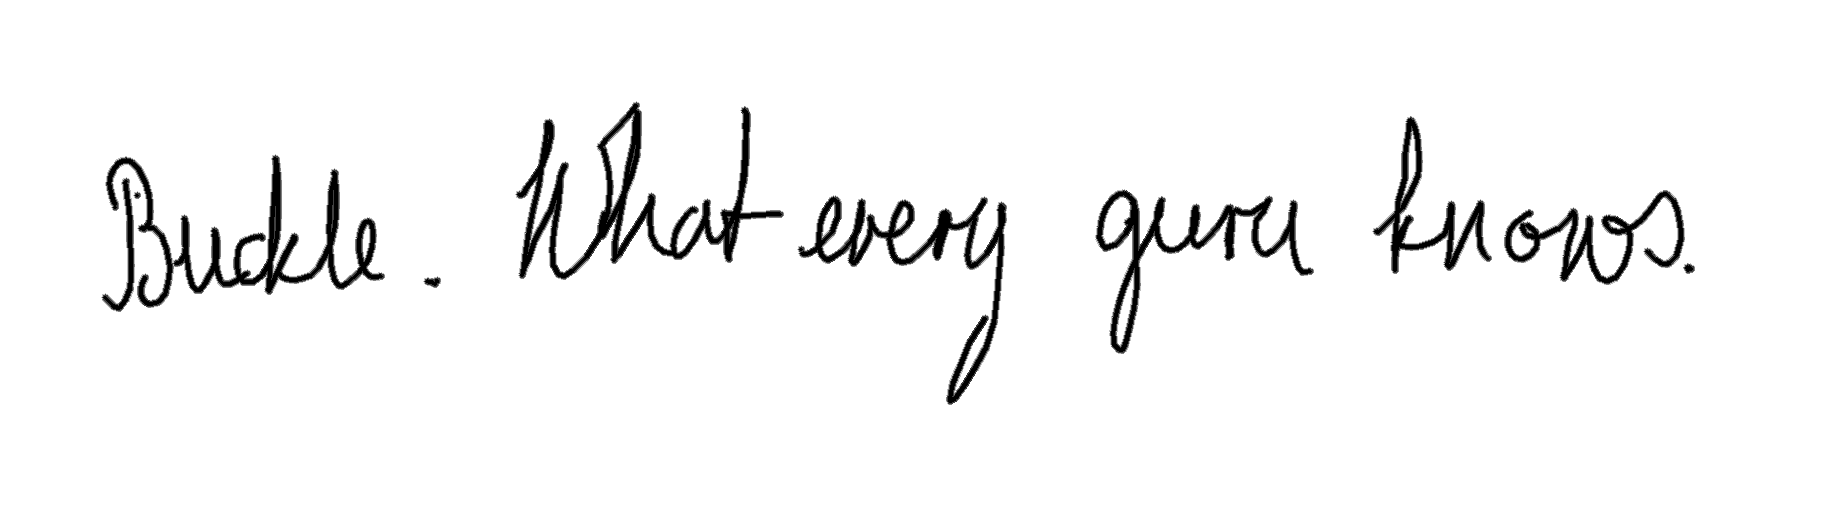 Buckle. What every guru knows.